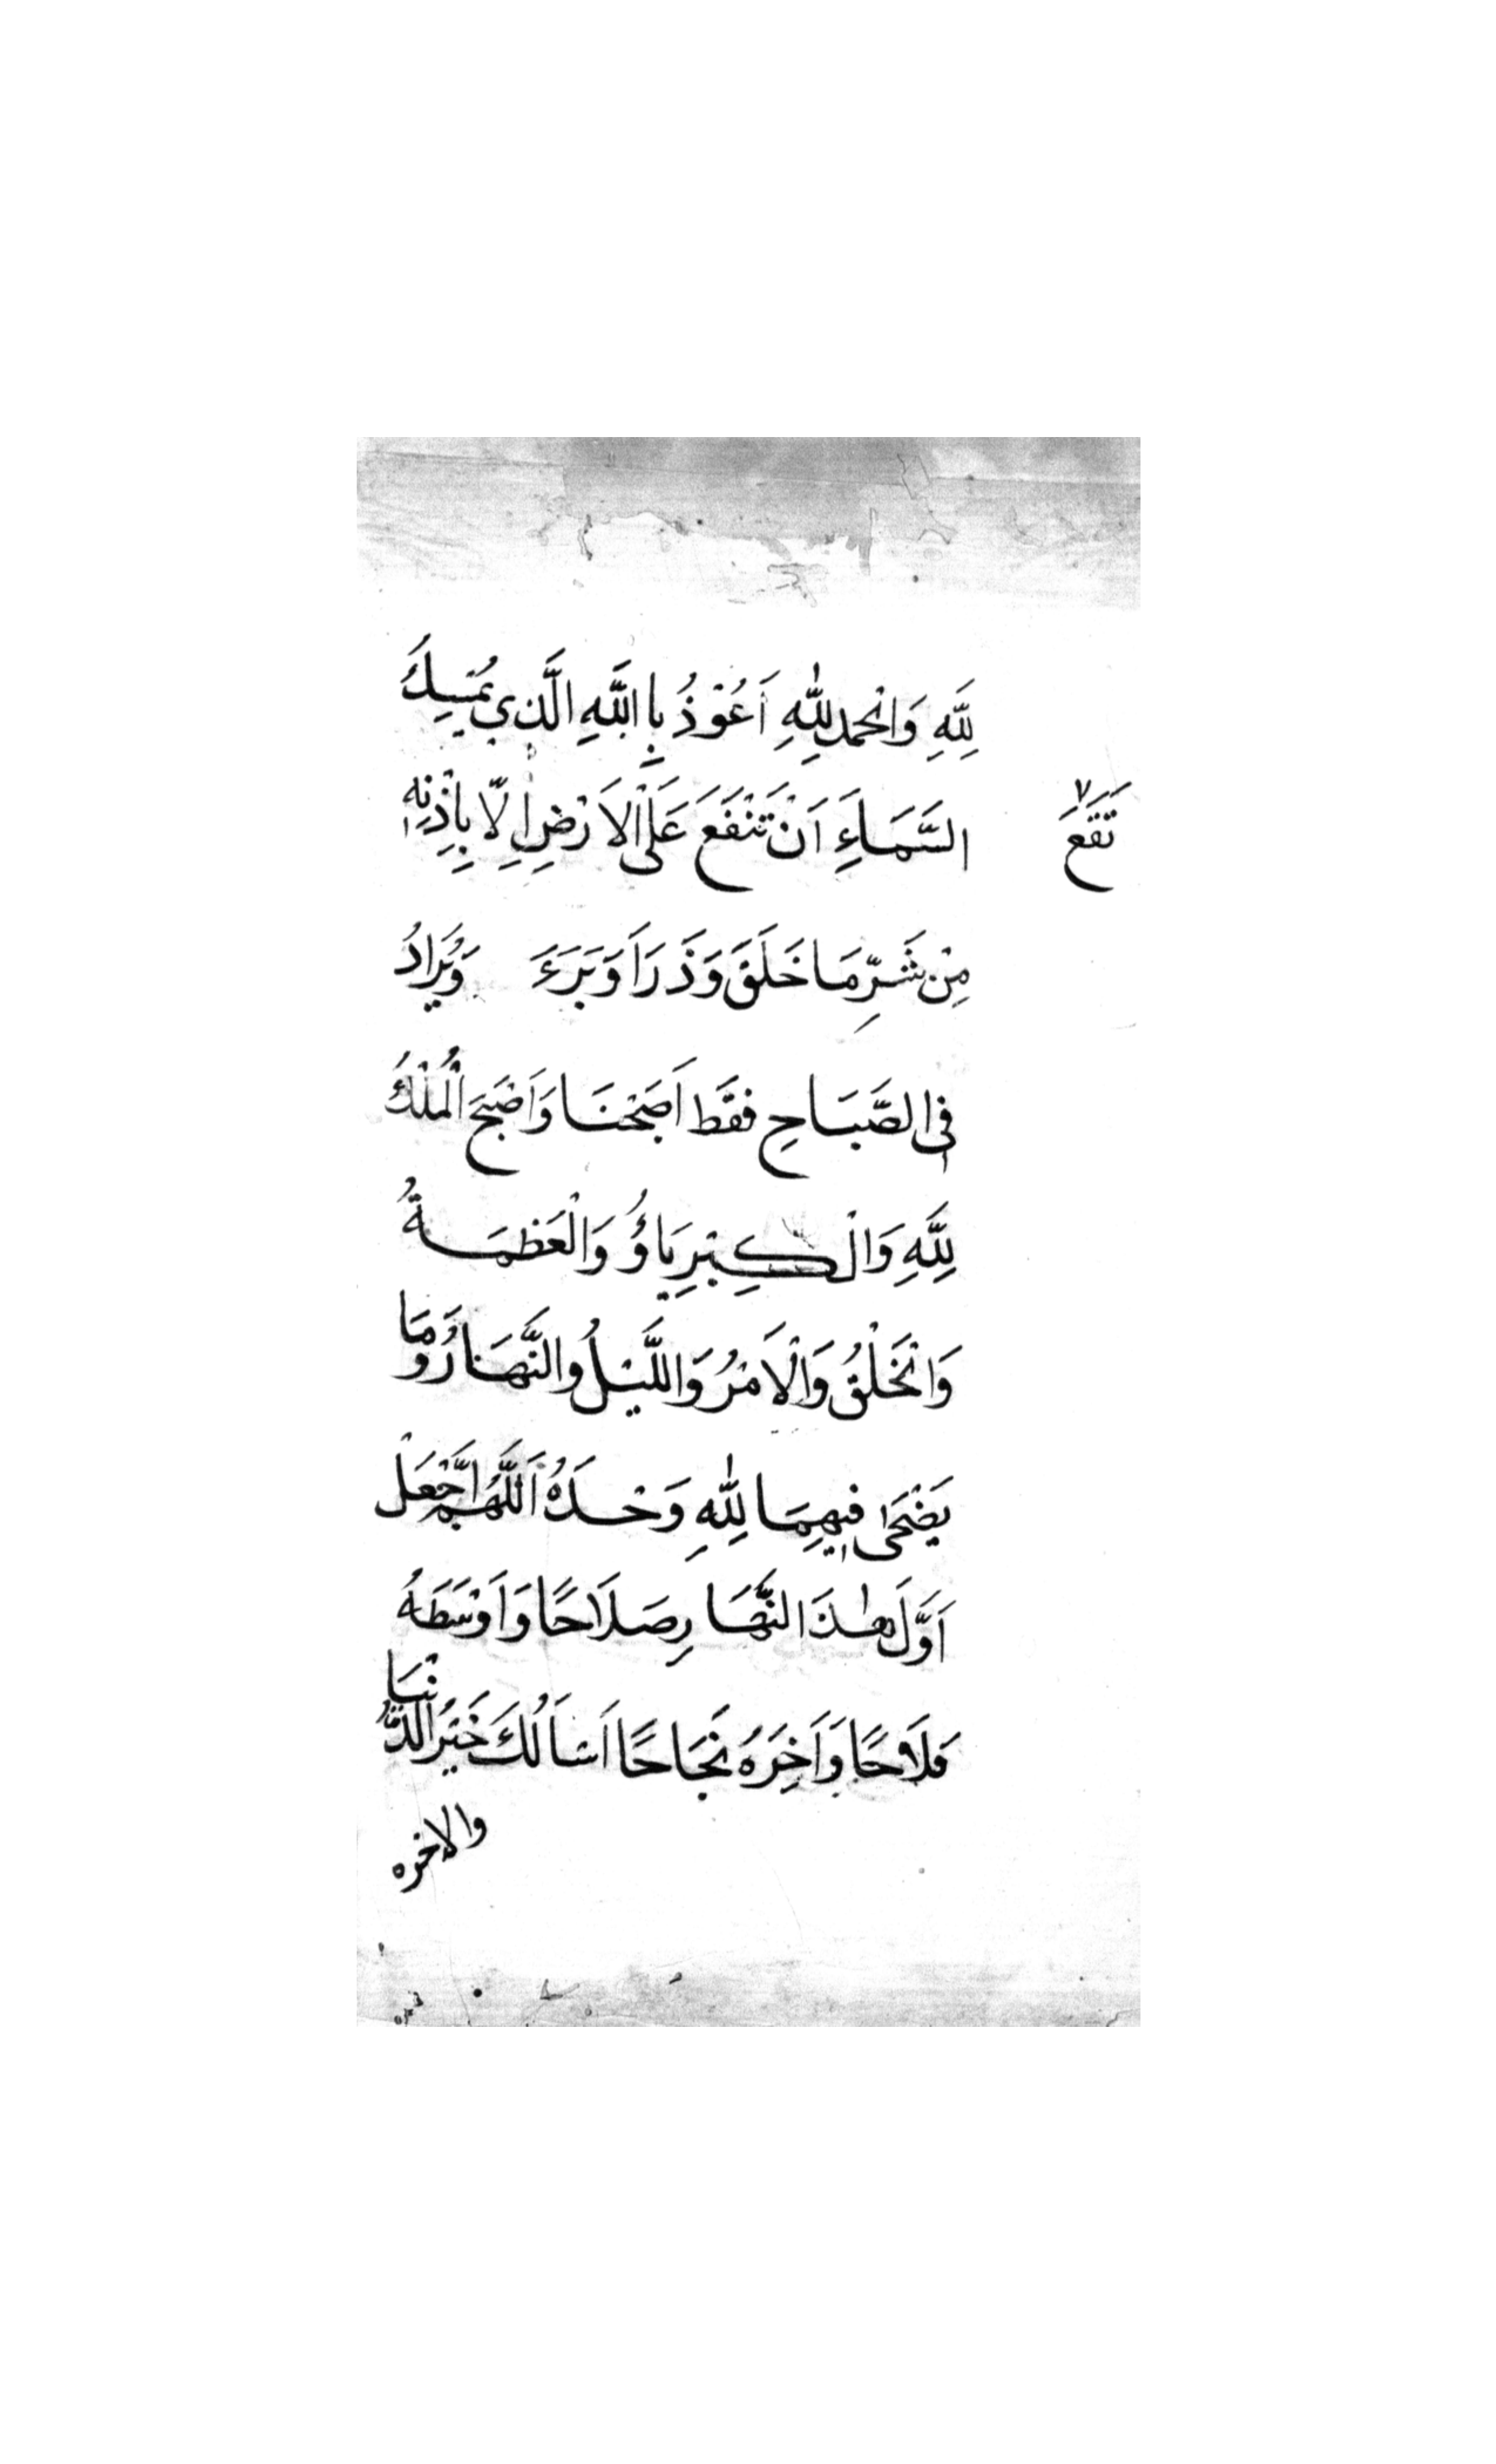 لِلَّهِ وَالْحَمدُ لِلّٰهِ اَعُوْذُ بِاللَّهِ الَّذِي يُمْسِكُ
السَّمَاءَ اَنْ تَنْفَعَ عَلَى الْاَرْضِ اِلَّا بِاِذْنِهِ
تَقَعَ
مِنْ شَرِّ مَا خَلَقَ وَذَرَاَ وَبَرَءَ وَيُزَادُ
فِى الصَّبَاحِ فقَط اَصْبَحْنَا وَاَصْبَحَ الْمُلْكُ
لِلَّهِ وَالْكِبْرِيَاؤُ وَالْعَظمَةُ
وَالْخَلْقُ وَالْاَمْرُ وَاللَّيْلُ والنَّهَارُ وَمَا
يَضْحَى فِيهِمَا لِلّٰهِ وَحْدَهُ اَللَّهُمَّ اجْعَلْ
اَوَّلَ هٰذَا النَّهَارِ صَلَاحًا وَاَوْسَطَهُ
فَلَاحًا وَاَخِرَهُ نَجَاحًا اَسْاَلُكَ خَيْرَ الدُّنْيَا
والاخره